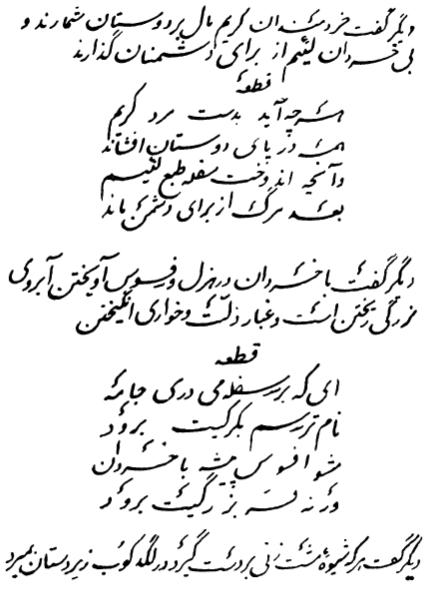 دیگر گفت خردمندان کریم مال بر دوستان شمارند و
بی خردان لئیم از برای دشمنان گذارند
قطعه
هر چه آید بدست مرد کریم
همه در پای دوستان افشاند
وآنچه اندوخت سفله طبع لئیم
بعد مرگ از برای دشمن ماند
دیگر گفت با خردان در هزل و فسوس آویختن آبروی
بزرگی ریختن است و غبار ذلت و خواری انگیختن
قطعه
ای که بر سفله می دری جامه
نام ترسم برود
مشو افسوس پیشه با خردان
ورنه بزرگیت برود
دیگر گفت هر که شیوهٔ مشت زنی بر دست گیرد در لگد کوب زیردستان بمیرد